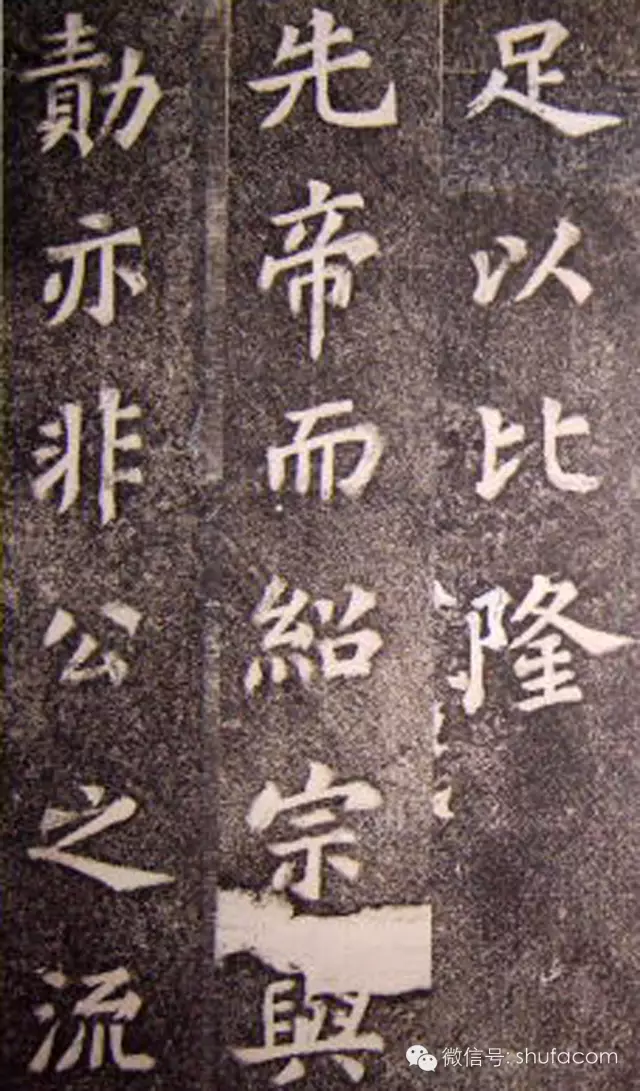 足以比隆
先帝而紹宗與
勣亦非公之流
微信号: shufacom